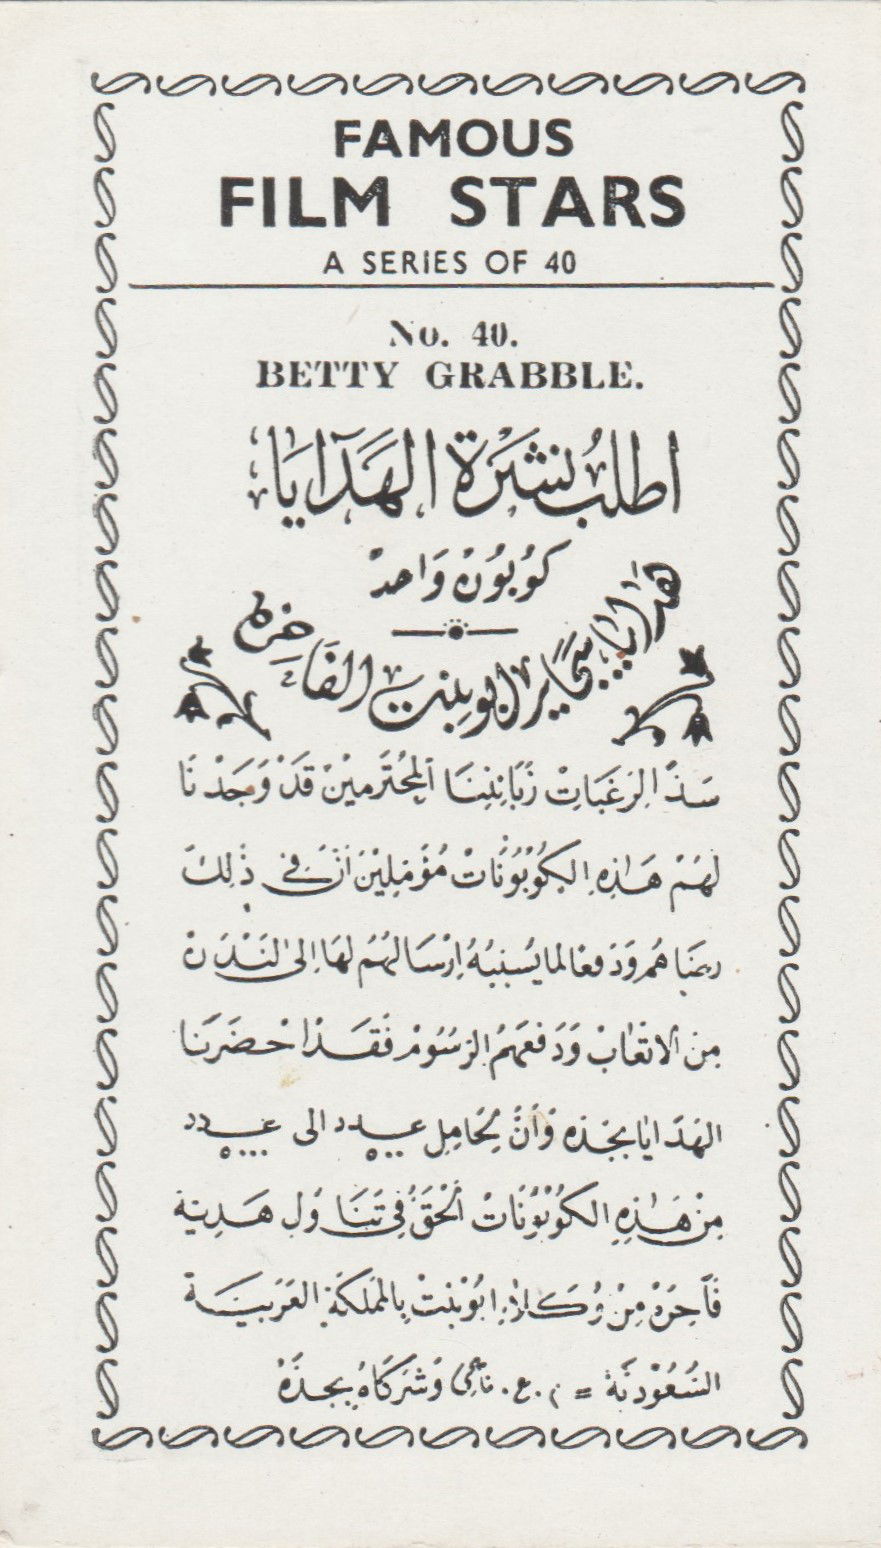 FAMOUS
FILM STARS
A SERIES OF 40
No. 40.
BETTY GRABBLE.
اطلب نشرة الهدايا
كوبون واحد
هدايا سجاير ابو بنت الفاخره
سدًا لرغبات زبائننا المحترمين قد وجدنا
لهم هذه الكوبونات مؤملين أن في ذلك
رضاهم ودفعا لما يسببه ارسالهم لها الى لندن
من الاتعاب ودفعهم الرسوم فقد احضرنا
الهدايا بجده وأن لحامل عدد الى عدد
من هذه الكوبونات ألحق في تناول هدية
فاخرة من وكلاء ابو بنت بالمملكة العربية
السعودية = م . ع . ناغى وشركاه بجدة